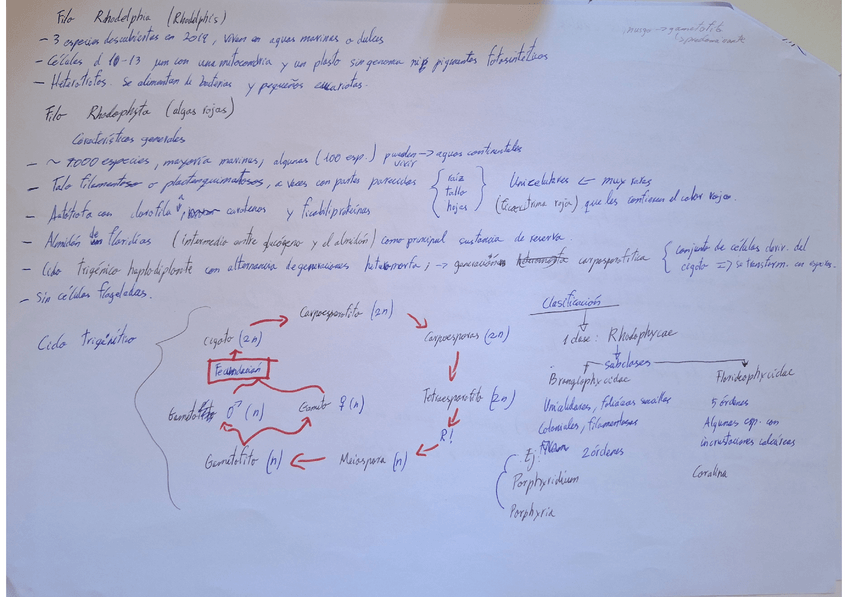 Filo Rhodelphia (Rhodelphis)
- 3 especies descubiertas en 2019, viven en aguas marinas o dulces
- Células d 10-13 µm con una mitocondria y un plasto sin genoma ni pigmentos fotosintéticos
- Heterótrofos. Se alimentan de bacterias y pequeños eucariotas.
Filo Rhodophyta (algas rojas)
Características generales
- ~ 7000 especies, mayoría marinas, algunas (100 esp.) pueden vivir → aguas continentales
- Talo filamentoso o plactenquimatosos, a veces con partes parecidas { raíz tallo hojas } Unicelulares ← muy raras
- Autótrofa con clorofila a, carotenos y ficobiliproteínas (ficoeritrina roja) que les confieren el color rojizo.
- Almidón de florídeas (intermedio entre glucógeno y el almidón) como principal sustancia de reserva.
- Ciclo trigénico haplodiplonte con alternancia de generaciones heteromorfa; → generación carposporofítica { conjunto de células deriv. del cigoto => se transform. en
- Sin células flageladas.
Ciclo trigenético
Carpoesporofito (2n)
Cigoto (2n)
Carpoesporas (2n)
Fecundación
Gameto ♂ (n)
Gameto ♀ (n)
Tetraesporofito (2n)
R!
Gametofito (n)
Meiospora (n)
Clasificación
1 clase: Rhodophycae
subclases
Bangiophycidae
Florideophycidae
Unicelulares, foliáceas sencillas
Coloniales, filamentosas
2 órdenes
Ej:
Porphyridium
Porphyria
5 órdenes
Algunas esp. con
incrustaciones calcáreas
Coralina